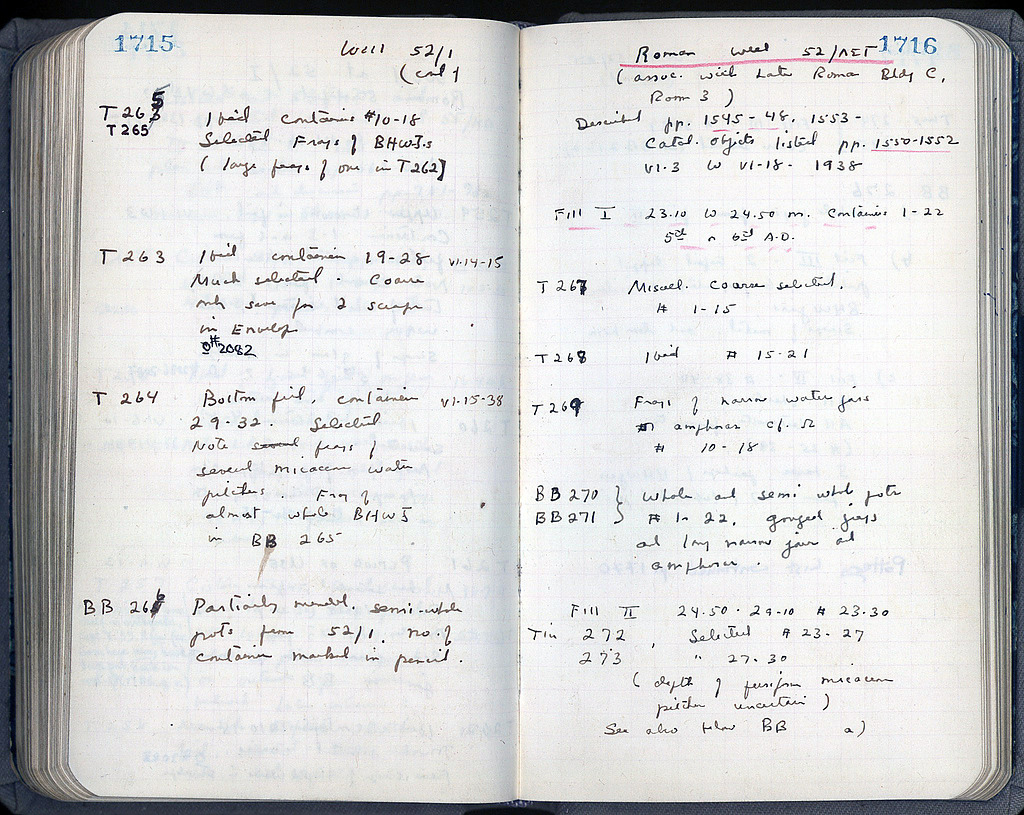 1715
Well 52/1
(cont)
T 265
T 265
containers #10-18
Selected Frags of BHWIs
(large frags of one in T262)
T 263
containers 19-28 VI-14-15
Much selected. Coarse
only save for 2 scraps
in Envelope
#2082
T 264
Bottom fill, containers VI-15-38
29-32. Selected
Note several frags of
several micaceous water
pitchers. Frag of
almost whole BHWI
in BB 265
BB 266
Partially mended. semi-whole
pots from 52/1, no. of
container marked in pencil.
1716
Roman well 52/
(assoc. with Later Roman Bldg C,
Room 3)
Described pp. 1545-48, 1553-
Catal. objects listed pp. 1550-1552
VI-3 to VI-18-1938
Fill I 23.10 to 24.50 m. Containers 1-22
5th or 6th A.D.
T 267 Miscel. coarse selected.
# 1-15
T 268 # 15-21
T 269 Frags of narrow water jars
or amphoras cf. Ω
# 10-18
BB 270 } whole and semi whole pots
BB 271 } # 1-22, gouged jugs
and long narrow jars and
amphoras.
Fill II 24.50-29.10 # 23-30
Tin 272, Selected # 23-27
273 " 27-30
(depth of fusiform micaceous
pitcher uncertain)
See also below BB a)